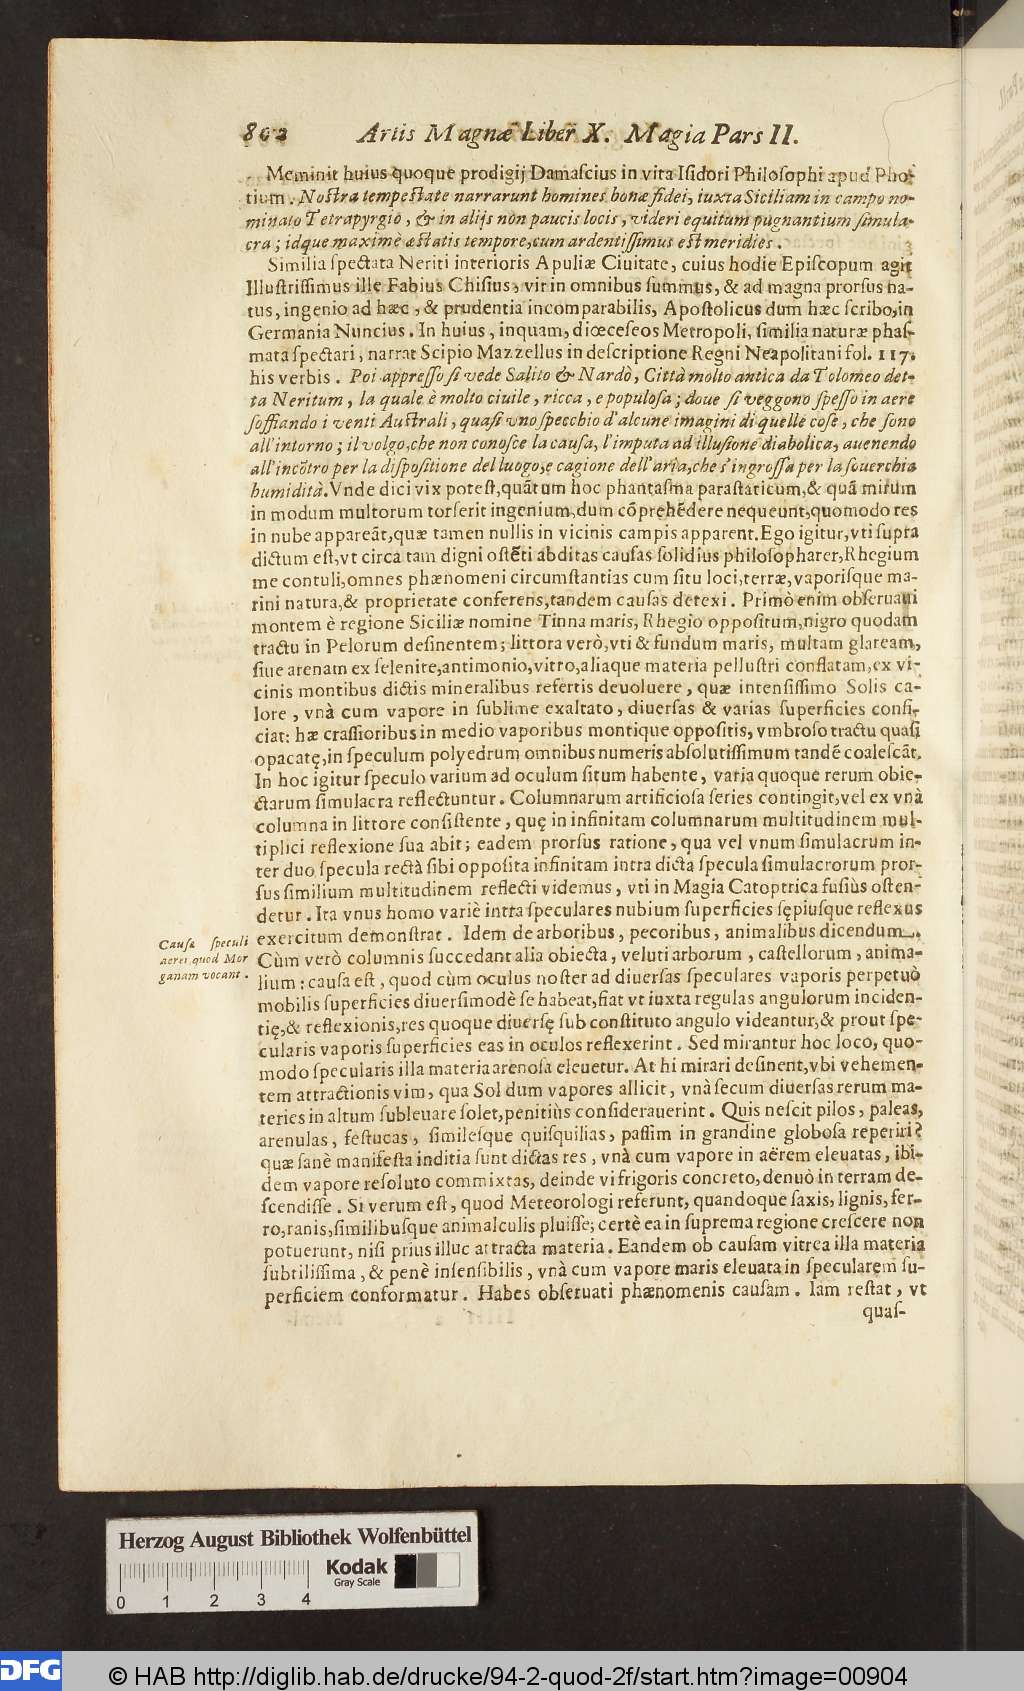 802 Artis Magnæ Liber X. Magia Pars II.
Meminit huius quoque prodigij Damaſcius in vita Iſidori Philoſophi apud Pho-
tium. Noſtra tempeſtate narrarunt homines bonæ fidei, iuxta Siciliam in campo no-
minato Tetrapyrgio, & in alijs non paucis locis, videri equitum pugnantium ſimula-
cra; idque maximè æſtatis tempore, cum ardentiſſimus eſt meridies.
Similia ſpectata Neriti interioris Apuliæ Ciuitate, cuius hodie Epiſcopum agit
Illuſtriſſimus ille Fabius Chiſius, vir in omnibus ſummus, & ad magna prorſus na-
tus, ingenio ad hæc, & prudentia incomparabilis, Apoſtolicus dum hæc ſcribo, in
Germania Nuncius. In huius, inquam, diœceſeos Metropoli, ſimilia naturæ phaſ-
mata ſpectari, narrat Scipio Mazzellus in deſcriptione Regni Neapolitani fol. 117.
his verbis. Poi appreſſo ſi vede Salito & Nardò, Città molto antica da Tolomeo det-
ta Neritum, la quale è molto ciuile, ricca, e populoſa; doue ſi veggono ſpeſſo in aere
ſoffiando i venti Auſtrali, quaſi vno ſpecchio d'alcune imagini di quelle coſe, che ſono
all'intorno; il volgo, che non conoſce la cauſa, l'imputa ad illuſione diabolica, auenendo
all'incõtro per la diſpoſitione del luogo, e cagione dell'aria, che s'ingroſſa per la ſouerchia
humidità. Vnde dici vix poteſt, quãtum hoc phantaſma paraſtaticum, & quã mirum
in modum multorum torſerit ingenium, dum cõprehẽdere nequeunt, quomodo res
in nube appareãt, quæ tamen nullis in vicinis campis apparent. Ego igitur, vti ſupra
dictum eſt, vt circa tam digni oſtẽti abditas cauſas ſolidius philoſopharer, Rhegium
me contuli, omnes phænomeni circumſtantias cum ſitu loci, terræ, vaporiſque ma-
rini natura, & proprietate conferens, tandem cauſas detexi. Primò enim obſeruaui
montem è regione Siciliæ nomine Tinna maris, Rhegio oppoſitum, nigro quodam
tractu in Pelorum deſinentem; littora verò, vti & fundum maris, multam glaream,
ſiue arenam ex ſelenite, antimonio, vitro, aliaque materia pelluſtri conflatam, ex vi-
cinis montibus dictis mineralibus refertis deuoluere, quæ intenſiſſimo Solis ca-
lore, vnà cum vapore in ſublime exaltato, diuerſas & varias ſuperficies confi-
ciat: hæ craſſioribus in medio vaporibus montique oppoſitis, vmbroſo tractu quaſi
opacatę, in ſpeculum polyedrum omnibus numeris abſolutiſſimum tandẽ coaleſcãt.
In hoc igitur ſpeculo varium ad oculum ſitum habente, varia quoque rerum obie-
ctarum ſimulacra reflectuntur. Columnarum artificioſa ſeries contingit, vel ex vnà
columna in littore conſiſtente, quę in infinitam columnarum multitudinem mul-
tiplici reflexione ſua abit; eadem prorſus ratione, qua vel vnum ſimulacrum in-
ter duo ſpecula rectà ſibi oppoſita infinitam intra dicta ſpecula ſimulacrorum pror-
ſus ſimilium multitudinem reflecti videmus, vti in Magia Catoptrica fuſiùs oſten-
detur. Ita vnus homo variè intra ſpeculares nubium ſuperficies ſępiuſque reflexus
exercitum demonſtrat. Idem de arboribus, pecoribus, animalibus dicendum.
Cauſa ſpeculi
aerei quod Mor
ganam vocant.
Cùm verò columnis ſuccedant alia obiecta, veluti arborum, caſtellorum, anima-
lium: cauſa eſt, quod cùm oculus noſter ad diuerſas ſpeculares vaporis perpetuò
mobilis ſuperficies diuerſimodè ſe habeat, fiat vt iuxta regulas angulorum inciden-
tię, & reflexionis, res quoque diuerſę ſub conſtituto angulo videantur, & prout ſpe-
cularis vaporis ſuperficies eas in oculos reflexerint. Sed mirantur hoc loco, quo-
modo ſpecularis illa materia arenoſa eleuetur. At hi mirari deſinent, vbi vehemen-
tem attractionis vim, qua Sol dum vapores allicit, vnà ſecum diuerſas rerum ma-
teries in altum ſubleuare ſolet, penitiùs conſiderauerint. Quis neſcit pilos, paleas,
arenulas, feſtucas, ſimileſque quiſquilias, paſſim in grandine globoſa reperiri?
quæ ſanè manifeſta inditia ſunt dictas res, vnà cum vapore in aërem eleuatas, ibi-
dem vapore reſoluto commixtas, deinde vi frigoris concreto, denuò in terram de-
ſcendiſſe. Si verum eſt, quod Meteorologi referunt, quandoque ſaxis, lignis, fer-
ro, ranis, ſimilibuſque animalculis pluiſſe; certè ea in ſuprema regione creſcere non
potuerunt, niſi prius illuc attracta materia. Eandem ob cauſam vitrea illa materia
ſubtiliſſima, & penè inſenſibilis, vnà cum vapore maris eleuata in ſpecularem ſu-
perficiem conformatur. Habes obſeruati phænomenis cauſam. Iam reſtat, vt
quaſ-
Herzog August Bibliothek Wolfenbüttel
Kodak
Gray Scale
0 1 2 3 4
DFG
© HAB http://diglib.hab.de/drucke/94-2-quod-2f/start.htm?image=00904